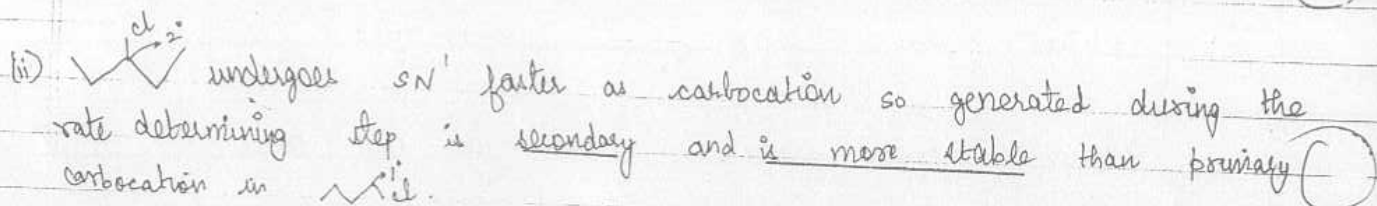 Cl
2°
(ii) undergoes SN¹ faster as carbocation so generated during the
rate determining step is secondary and is more stable than primary
carbocation in 1° Cl.